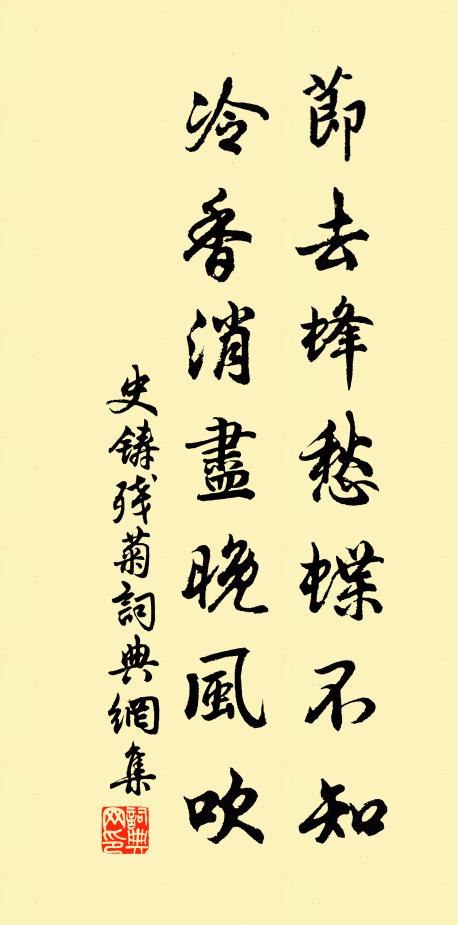 節去蜂愁蝶不知
冷香消盡晚風吹
史鑄残菊詞典網集
詞典網印